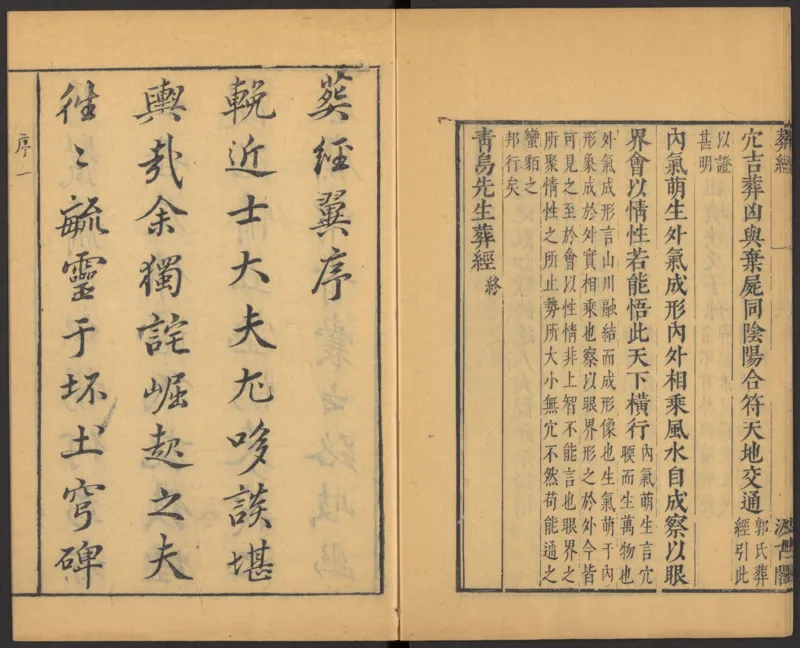 葬經
汲古閣
穴吉葬凶與棄屍同陰陽合符天地交通
郭氏葬
經引此
以證
甚明
內氣萌生外氣成形內外相乘風水自成察以眼
界會以情性若能悟此天下橫行
內氣萌生言穴
暖而生萬物也
外氣成形言山川融結而成形像也生氣萌于內
形象成於外實相乘也察以眼界形之於外今皆
可見之至於會以性情非上智不能言也眼界之
所聚情性之所止勢所大小無穴不然苟能通之
蠻貊之
邦行矣
青烏先生葬經 終
葬經翼序
輓近士大夫尤哆談堪
輿哉余獨詫崛起之夫
往〻毓靈于坏土穹碑
序一